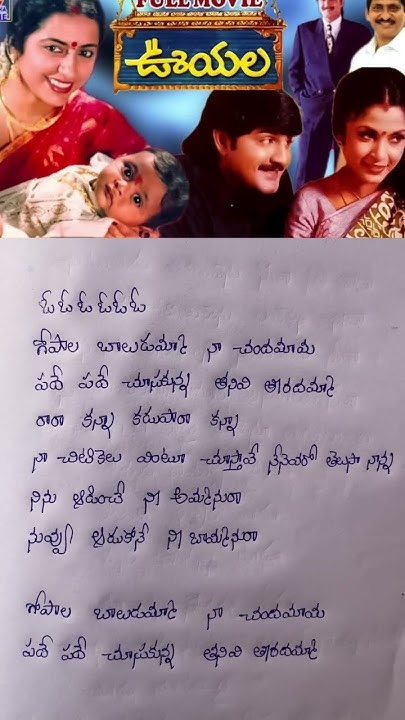 FULL MOVIE
ఊయల
ఓ ఓ ఓ ఓ ఓ ఓ
గోపాల బాలుడమ్మా నా చందమామ
పదే పదే చూసుకున్న తనివి తీరదమ్మా
రారా కన్నా కడుపారా కన్నా
నా చిటికెలు వింటూ చూస్తావే నేనెవరో తెలుసా నాన్న
నిను ఆడించే నీ అమ్మనురా
నువ్వు ఆడుకొనే నీ బొమ్మనురా
గోపాల బాలుడమ్మా నా చందమామ
పదే పదే చూసుకున్న తనివి తీరదమ్మా